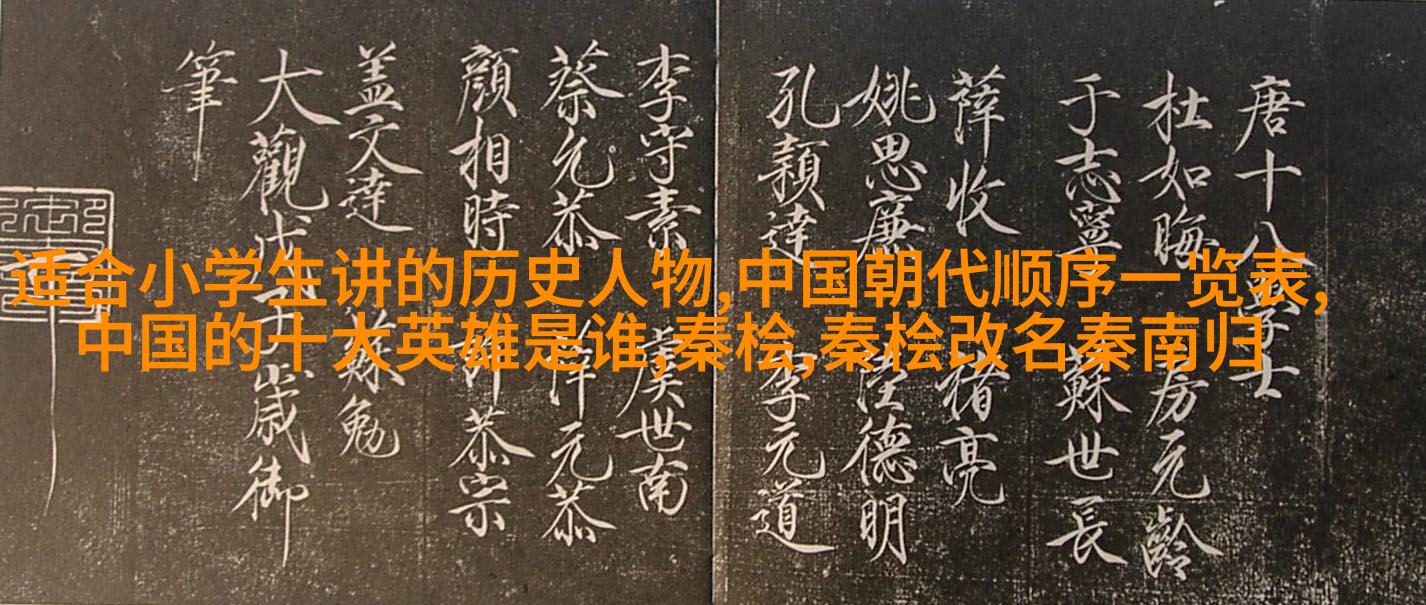 适合小学生讲的历史人物,中国朝代顺序一览表,
中国的十大英雄是谁,秦桧,秦桧改名秦南归
唐十八學士
杜如晦 房元齡
于志寧 蘇世長
薛收 褚亮
姚思廉 陸德明
孔穎達 李元道
李守素 虞世南
蔡允恭 薛元恭
顏相時 許恭宗
盖文達 蘇勉
大觀戊子歲御
筆